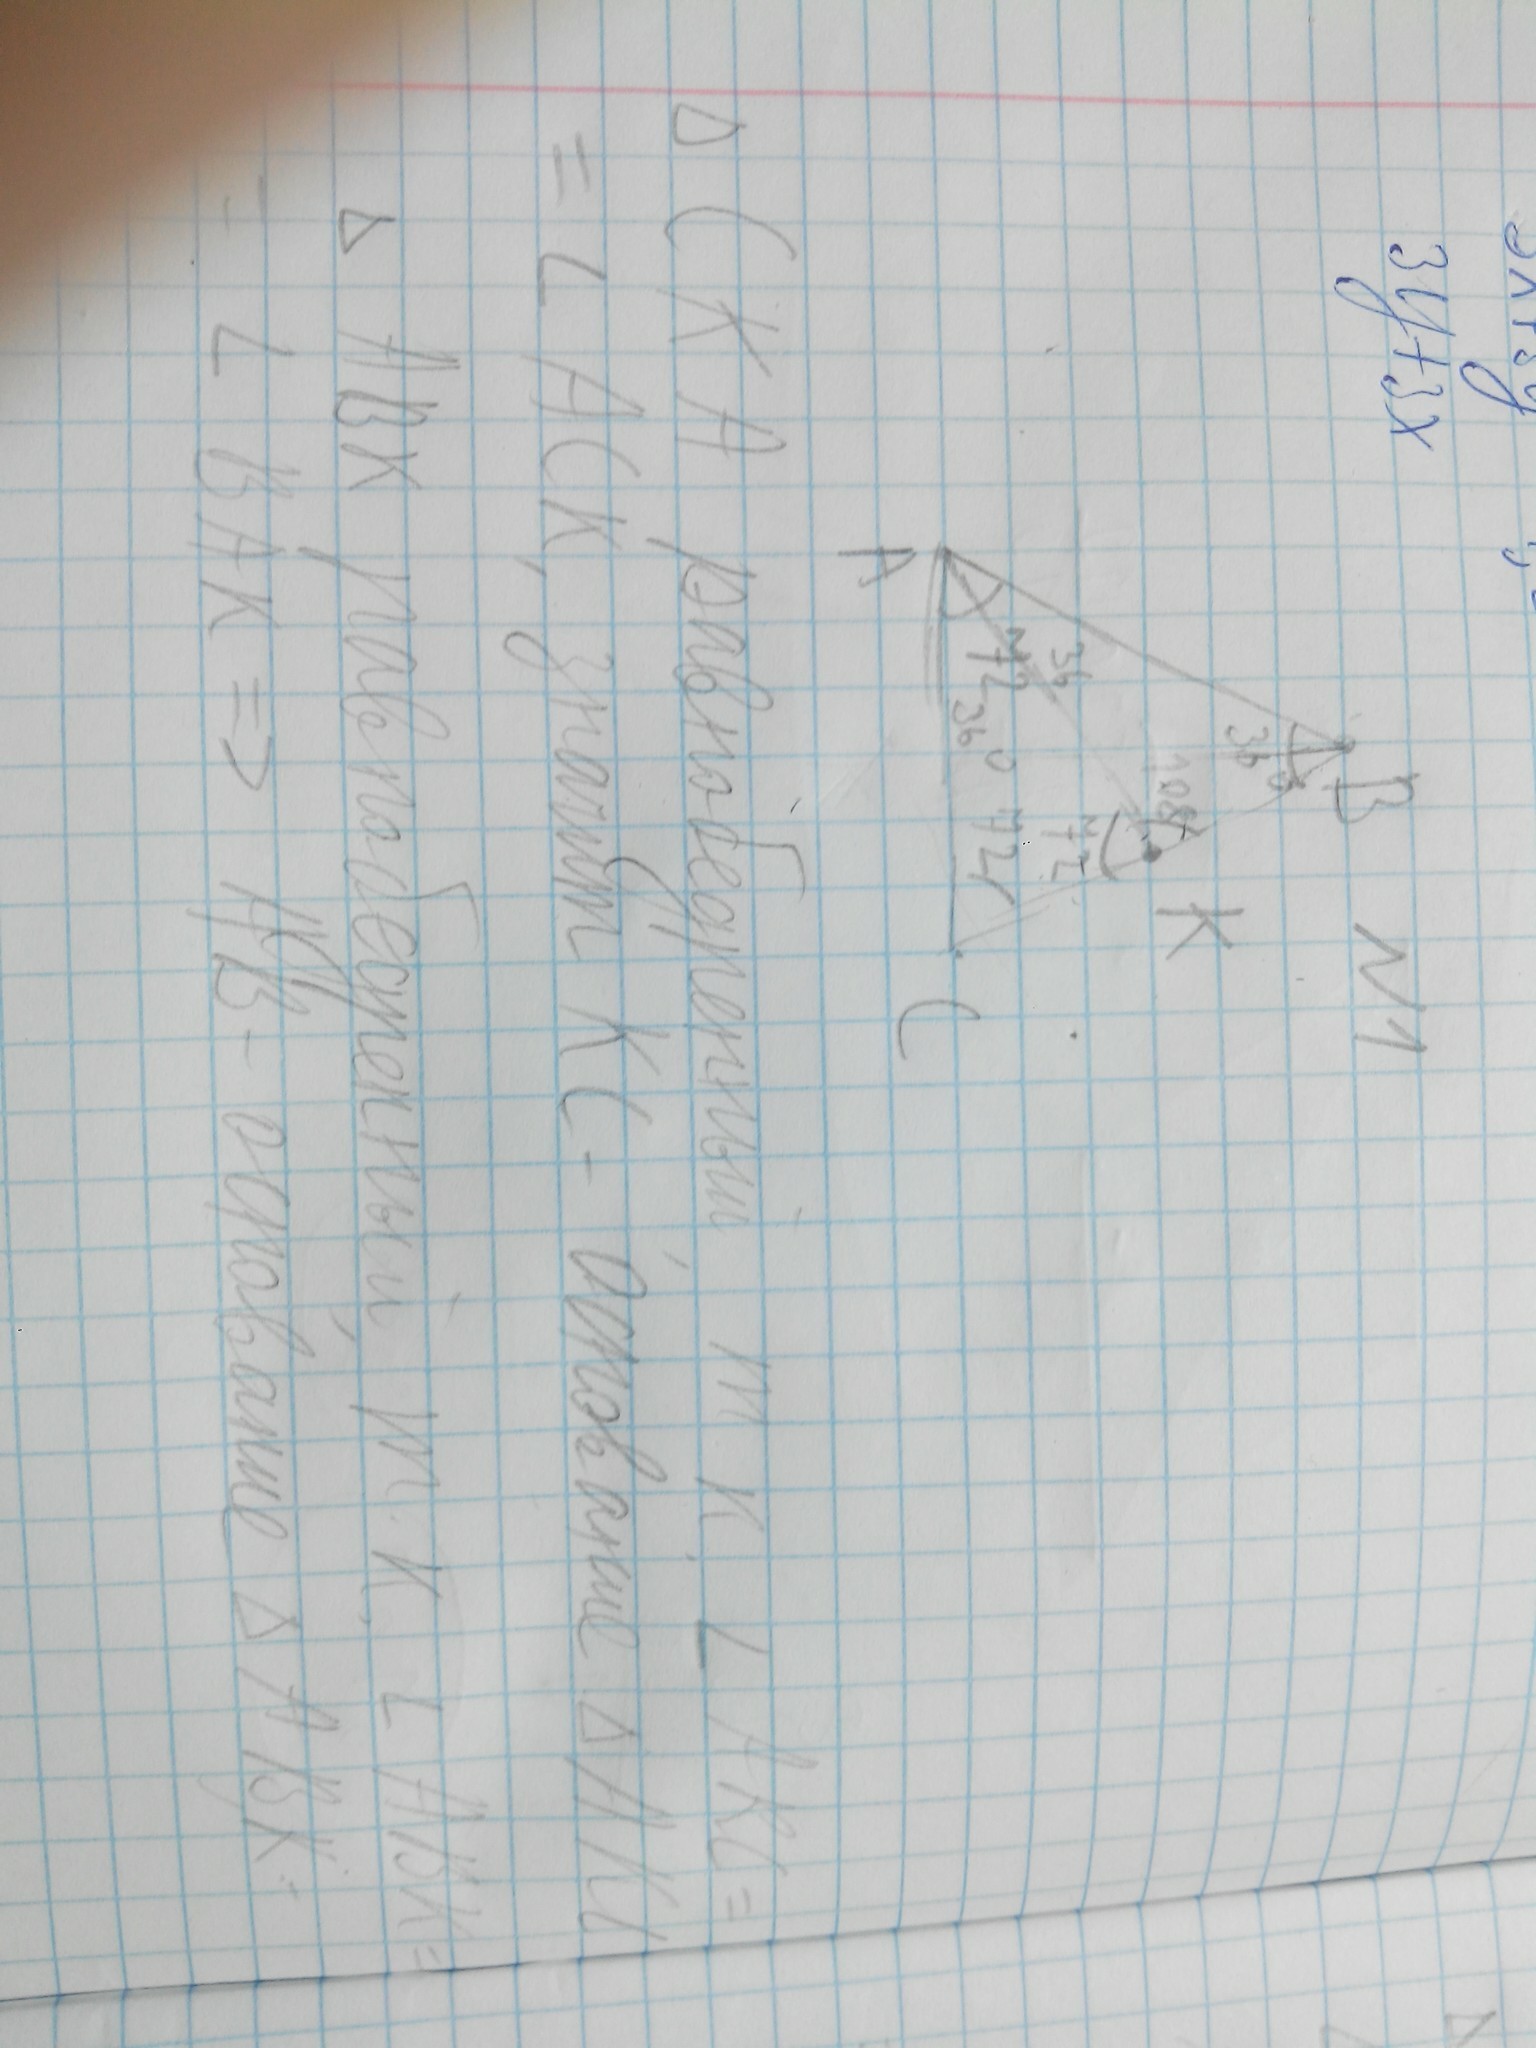 3y+3x
N1
B
36°
K
108
36
72
72
36°
72
A
C
Δ CKA равнобедренный, т к. ∠ AKC =
= ∠ ACK, значит KC - основание Δ AKC
Δ ABK равнобедренный, т. к. ∠ ABK =
= ∠ BAK => AB - основание Δ ABK.